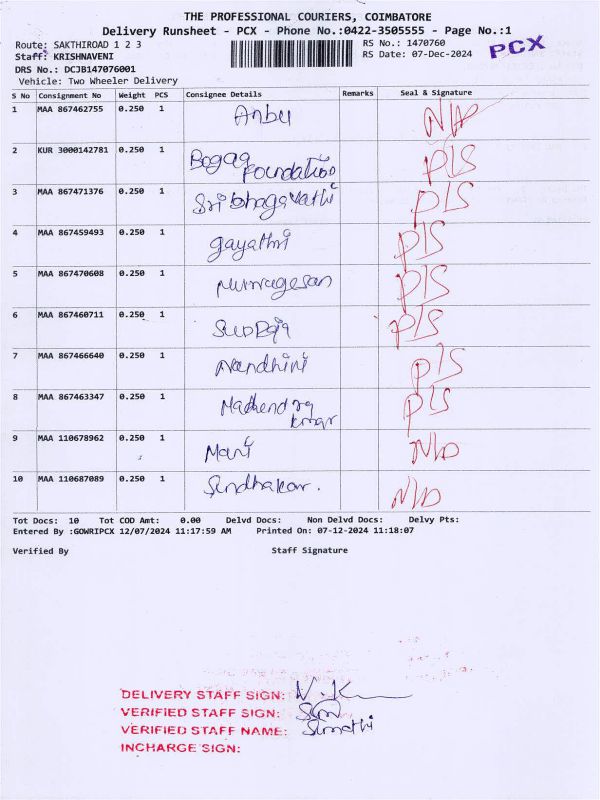 THE PROFESSIONAL COURIERS, COIMBATORE
Delivery Runsheet - PCX - Phone No.:0422-3505555 - Page No.:1
Route: SAKTHIROAD 1 2 3 RS No.: 1470760 PCX
Staff: KRISHNAVENI RS Date: 07-Dec-2024
DRS No.: DCJB147076001
Vehicle: Two Wheeler Delivery
S No Consignment No Weight PCS Consignee Details Remarks Seal & Signature
1 MAA 867462755 0.250 1 Anbu
2 KUR 3000142781 0.250 1 Foundation P/S
3 MAA 867471376 0.250 1 Sri bhagavathi P/S
4 MAA 867459493 0.250 1 gayathri P/S
5 MAA 867470608 0.250 1 Murugesan P/S
6 MAA 867460711 0.250 1 P/S
7 MAA 867466640 0.250 1 Nandhini P/S
8 MAA 867463347 0.250 1 P/S
9 MAA 110678962 0.250 1 Mani N/D
10 MAA 110687089 0.250 1 N/D
Tot Docs: 10 Tot COD Amt: 0.00 Delvd Docs: Non Delvd Docs: Delvy Pts:
Entered By :GOWRIPCX 12/07/2024 11:17:59 AM Printed On: 07-12-2024 11:18:07
Verified By Staff Signature
DELIVERY STAFF SIGN: N.K
VERIFIED STAFF SIGN:
VERIFIED STAFF NAME: Sumathi
INCHARGE SIGN: